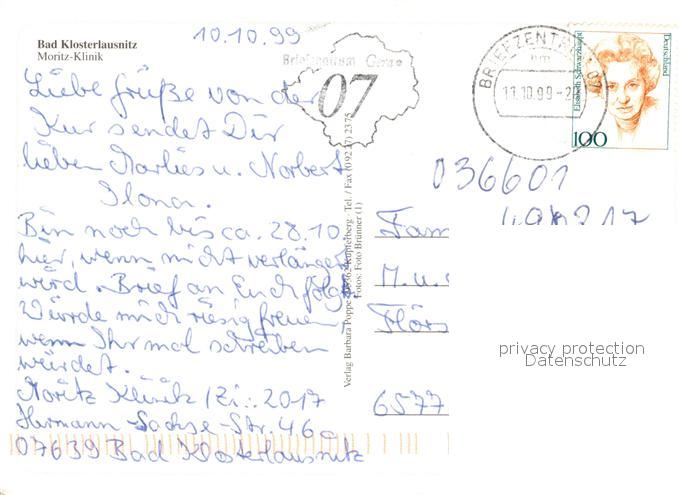 10.10.99
Bad Klosterlausnitz
Moritz-Klinik
Liebe Grüße von der
Kur sendet Dir
lieben Marlies u. Norbert
Ilona.
Bin noch bis ca. 28.10
hier, wenn nicht verlängert
wird. Brief an Euch folgt.
Würde mich riesig freuen,
wenn Ihr mal schreiben
würdet.
Moritz Klinik / Zi.: 2017
Hermann-Sachse-Str. 46
07639 Bad Klosterlausnitz
Verlag Barbara Poppe Kupferberg · Tel. / Fax (092 27) 2375
Fotos: Foto Brünner (1)
Briefzentrum Gera
07
BRIEFZENTRUM 07
11.10.99-2
Elisabeth Schwarzhaupt
Deutschland
100
036601
Fam
M. u.
Flörs
6577
privacy protection
Datenschutz